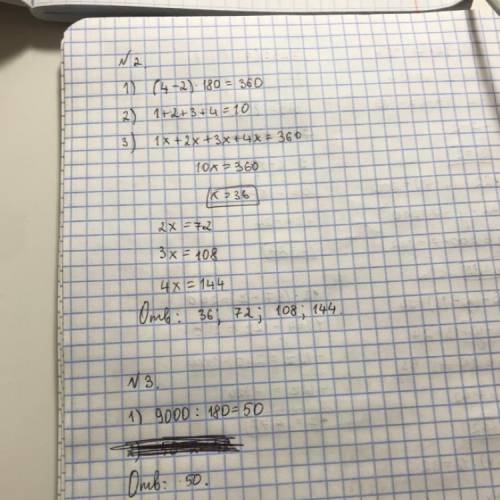 №2.
1) (4-2)·180=360
2) 1+2+3+4=10
3) 1x+2x+3x+4x=360
10x=360
x=36
2x=72
3x=108
4x=144
Отв: 36; 72; 108; 144.
№3.
1) 9000:180=50
Отв: 50.